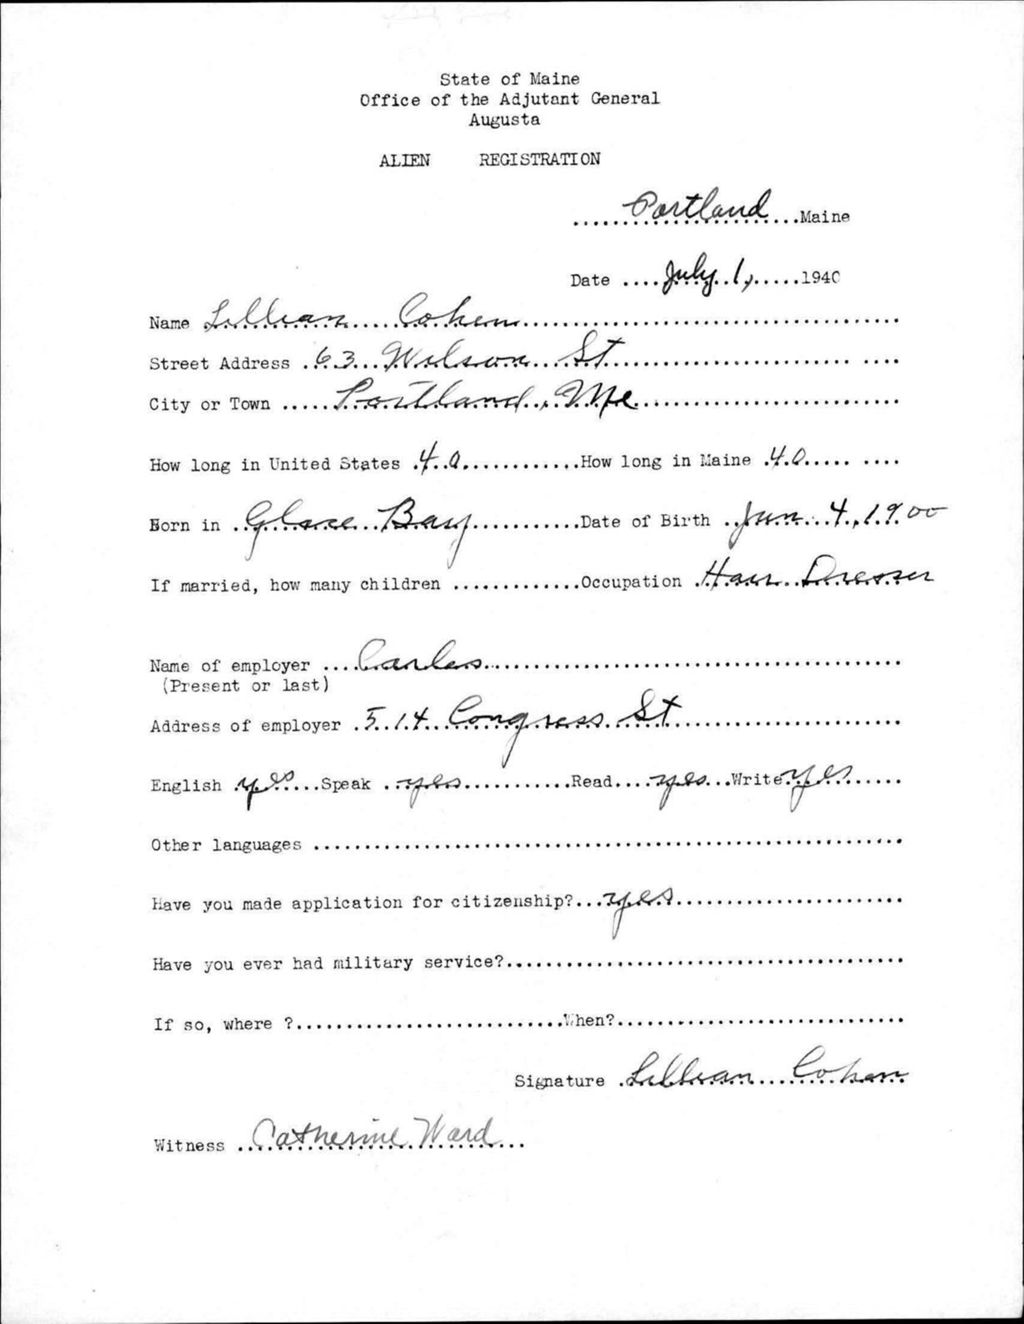 State of Maine
Office of the Adjutant General
Augusta
ALIEN REGISTRATION
Portland Maine
Date July 1, 1940
Name Lillian Cohen
Street Address 63 Wilson St
City or Town Portland, Me
How long in United States 40 How long in Maine 40
Born in Glace Bay Date of Birth Jun 4, 1900
If married, how many children Occupation Hair Dresser
Name of employer Carles
(Present or last)
Address of employer 514 Congress St
English yes Speak yes Read yes Write yes
Other languages
Have you made application for citizenship? yes
Have you ever had military service?
If so, where ? When?
Signature Lillian Cohen
Witness Catherine Ward